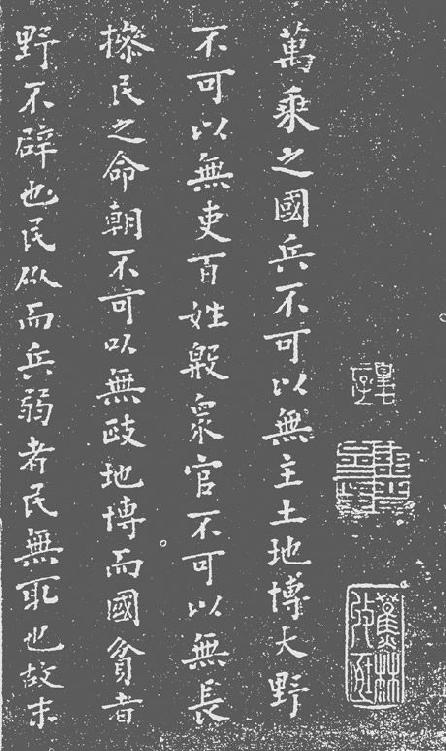 萬乘之國兵不可以無主土地博大野
不可以無吏百姓殷衆官不可以無長
操民之命朝不可以無政地博而國貧者
野不辟也民㒱而兵弱者民無取也故末